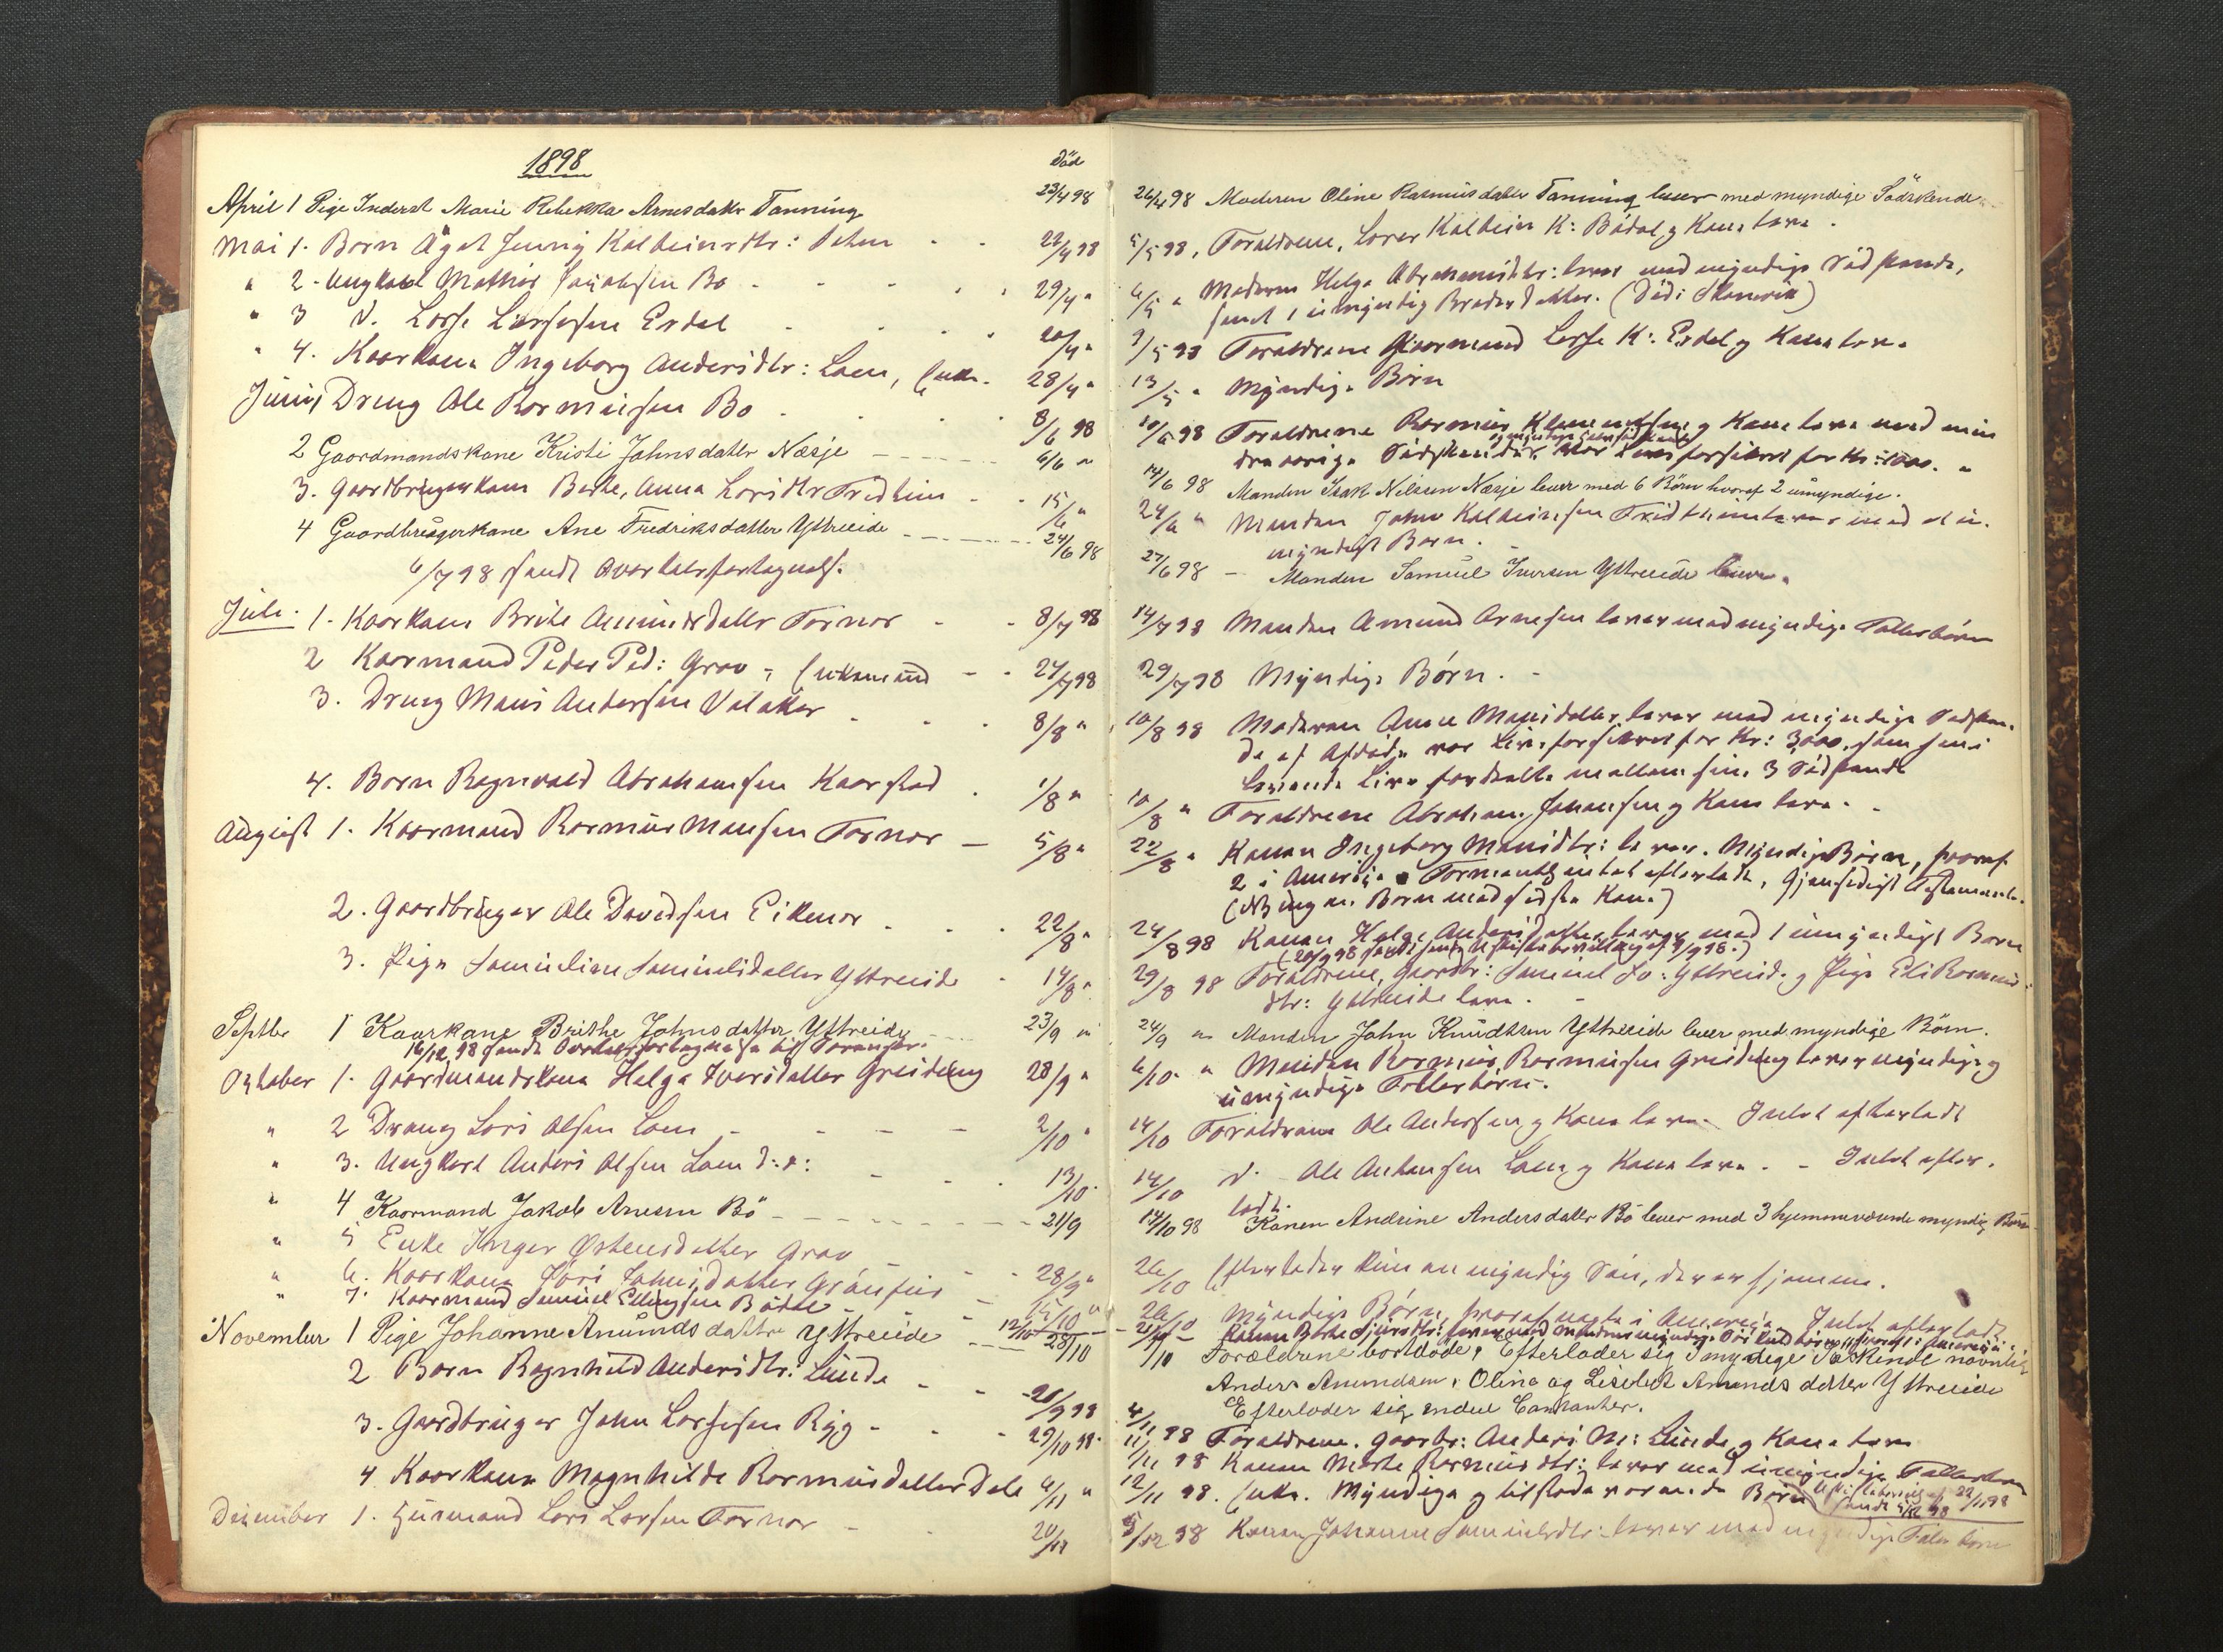 1898
Död
April 1 Pige Inderst Marie Rebekka Arnesdatter Tanning 23/4 98
Mai 1. Barn Jenny Kolbeinsdtr: 22/4 98
" 2. Ungkarl Mathias Jacobsen Bø 29/4 "
" 3 d. Lasse Lassesen Erdal 20/4 "
" 4. Kaarkone Ingeborg Andersdtr: Lam, Enke. 28/4 "
Juni 1 Dreng Ole Rasmussen Bø 8/6 98
2 Gaardmandskone Kristi Johnsdatter Næsje 6/6 "
3. Gaardbrugerkone Berthe, Anna Larsdtr 15/6 "
4 Gaardbrugerkone Ane Fredriksdatter Yttreeide 24/6 98
6/7 98 sendt Overhalvfortegnelse.
Juli. 1. Kaarkone Brite Amundsdatter Fornes 8/7 98
2 Kaarmand Peder Ped: Grov, Enkemand 24/7 98
3. Dreng Mons Andersen Valaker 8/8 "
4. Barn Ragnvald Abrahamsen Kaarstad 1/8 "
August 1. Kaarmand Rasmus Monsen Fornes 5/8 "
2. Gaardbruger Ole Davidsen Eikenes 22/8 "
3. Pige Samueline Samuelsdatter Yttreeide 14/8 "
Septbr 1 Kaarkone Brithe Johnsdatter Yttreeide 23/9 "
16/12 98 sendt
Oktober 1. Gaardmandskone Helga Iversdatter Greidung 28/9 "
" 2 Dreng Lars Olsen Lam 2/10 "
" 3. Ungkarl Anders Olsen Lam 13/10.
" 4 Kaarmand Jakob Anesen Bö 21/9
" 5 Enke Inger Østensdatter Grov 28/9 "
" 6. Kaarkone Johnsdatter 15/10 "
" 7. Kaarmand Samuel Ellingsen 12/10
November 1 Pige Johanne Anundsdatter Yttreeide 28/10
2 Barn Ragnhild Andersdtr: Lunde 20/9 98
3. Gaardbruger John Lassesen Ryg 29/10 98.
4 Kaarkone Magnhilde Rasmusdatter Dale 6/11 "
December 1. Husmand Lars Larsen Fornes 20/11
26/4 98 Moderen Oline Rasmusdatter Tanning lever med myndige Södskende
5/5 98, Forældrene, Kolbein K: Bødal og Kone leve.
6/5 " Moderen Helga Abrahamsdtr: lever med myndige Södskende,
samt 1 umyndig Broderdatter. (Död i
3/5 98 Forældrene Gaarmand Lasse K: Erdal og Kone leve.
13/5 " Myndige Børn
10/6 98 Forældrene Rasmus Klementsen og Kone leve med min
dreaarige Södskende, var Livsforsikret for Kr: 1000.
14/6 98 Manden Isak Nelsen Næsje lever med 6 Börn hvoraf 2 umyndige.
24/6 " Manden John Kolbeinsen lever med et u-
myndigt Barn.
27/6 98 – Manden Samuel Iversen Yttreeide lever.
14/7 98 Manden Amund Arnesen lever med myndige Fællesbørn
29/7 98 Myndige Børn.
10/8 98 Moderen Anne Monsdatter lever med myndige Södsken-
de af Afdøde, var Livsforsikret for Kr: 3000, som hun i
levende Live fordelte mellem sine 3 Södskende
10/8 " Forældrene Abraham Johansen og Kone leve.
22/8 " Konen Ingeborg Monsdtr: lever. Myndige Børn, hvoraf
2 i Amerika. Formentlig intet efterladt, Gjensidigt Testamente.
(NB ingen Børn med sidste Kone)
24/8 98 Konen Helge Andersdatter lever med 1 umyndigt Barn
29/8 98 Forældrene, Gaardbr: Samuel Iv: Yttreeide og Pige Eli Rasmus-
dtr: Yttreeide leve.
24/9 " Manden John Knudtsen Yttreeide lever med myndige Börn.
6/10 " Manden Rasmus Rasmussen Greidung lever myndige og
umyndige Fællesbørn.
14/10 Forældrene Ole Andersen og Kone leve. Intet efterladt
14/10 d. Ole Andersen Lam og Kone leve. – Intet efter-
ladt.
14/10 98 Konen Andrine Andersdatter Bö lever med 3 hjemmeværende myndig Börn
26/10 Efterlader kun en myndig Søn, der er hjemme.
26/10 Myndige Børn, hvoraf i Amerika. Intet efterladt.
/10 Forældrene bortdöde, Efterlader sig 3 myndige Söskende navnlig
Anders Anundsen, Olina og Lisebet Anundsdatter Yttreeide
Efterlader sig endel Contanter.
4/11 98 Forældrene. Gaardbr: Anders M: Lunde og Kone leve
11/11 98 Konen Marte Rasmusdtr: lever med umyndige Fællesbørn
12/11 98. Enke. Myndige og tilstedeværende Børn
5/12 98 Konen Johanne Samuelsdtr: lever med myndige Fælesbörn